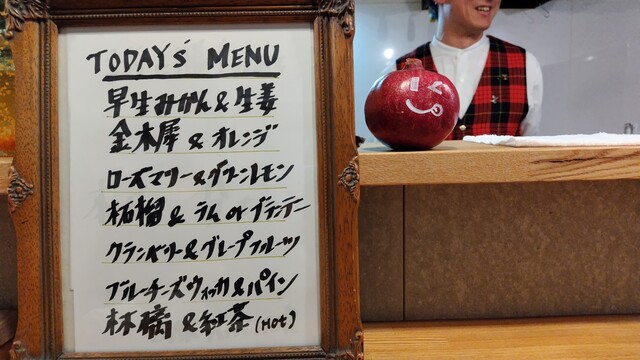 TODAY'S MENU
早生みかん&生姜
金木犀 & オレンジ
ローズマリー&グリーンレモン
柘榴 & ラム or ブランデー
クランベリー&グレープフルーツ
ブルーチーズウォッカ&パイン
林檎 &紅茶 (HOT)